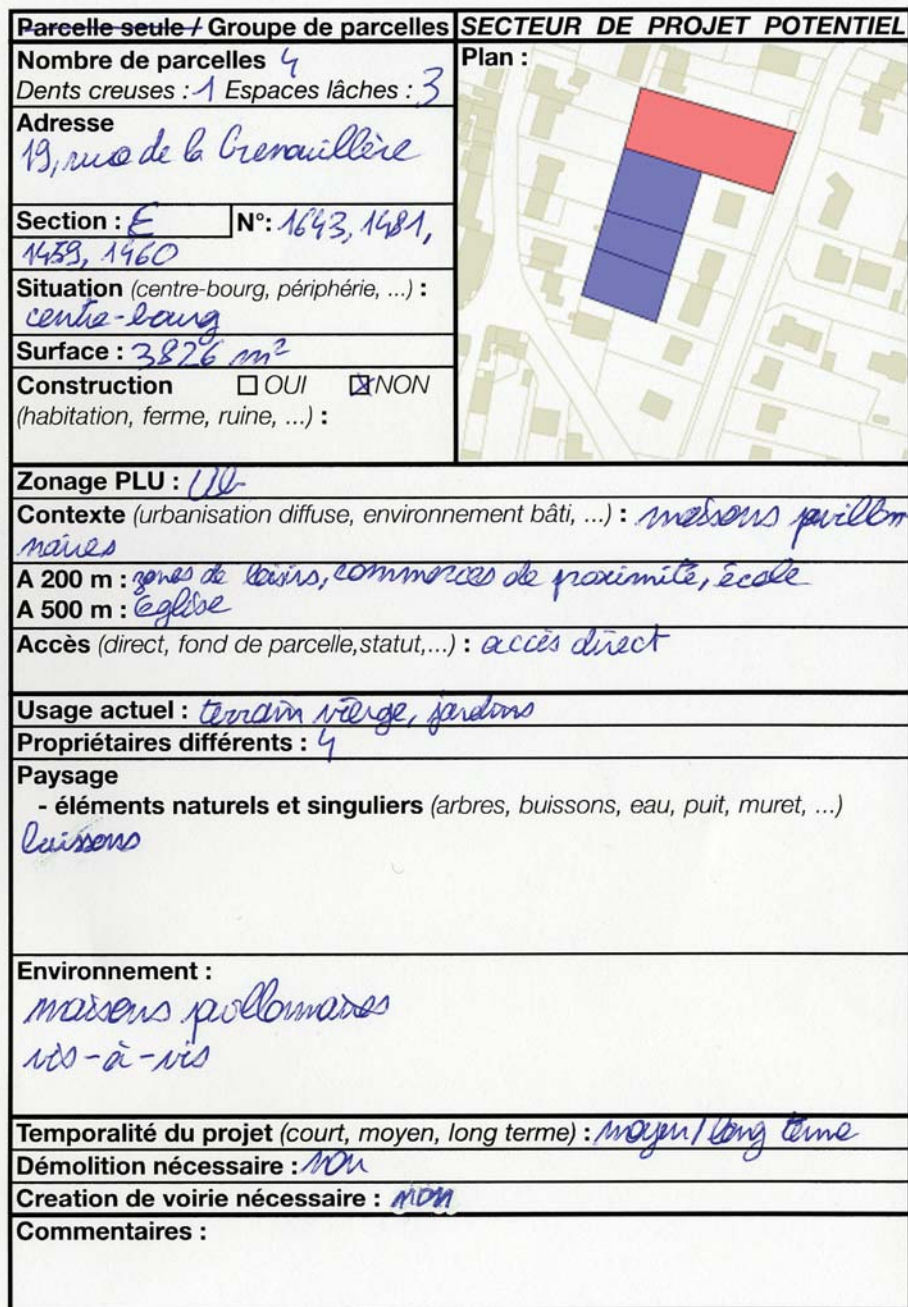 Parcelle seule / Groupe de parcelles
SECTEUR DE PROJET POTENTIEL
Nombre de parcelles 4
Dents creuses : 1 Espaces lâches : 3
Plan :
Adresse
19, rue de la Grenouillère
Section : E N°: 1643, 1481,
1459, 1460
Situation (centre-bourg, périphérie, ...) :
centre-bourg
Surface : 3826 m²
Construction ☐ OUI ☒ NON
(habitation, ferme, ruine, ...) :
Zonage PLU : Ub
Contexte (urbanisation diffuse, environnement bâti, ...) : maisons pavillon
naires
A 200 m : zones de loisirs, commerces de proximité, école
A 500 m : église
Accès (direct, fond de parcelle,statut,...) : accès direct
Usage actuel : terrain vierge, jardins
Propriétaires différents : 4
Paysage
- éléments naturels et singuliers (arbres, buissons, eau, puit, muret, ...)
buissons
Environnement :
maisons pavillonnaires
vis-à-vis
Temporalité du projet (court, moyen, long terme) : moyen / long terme
Démolition nécessaire : non
Creation de voirie nécessaire : non
Commentaires :